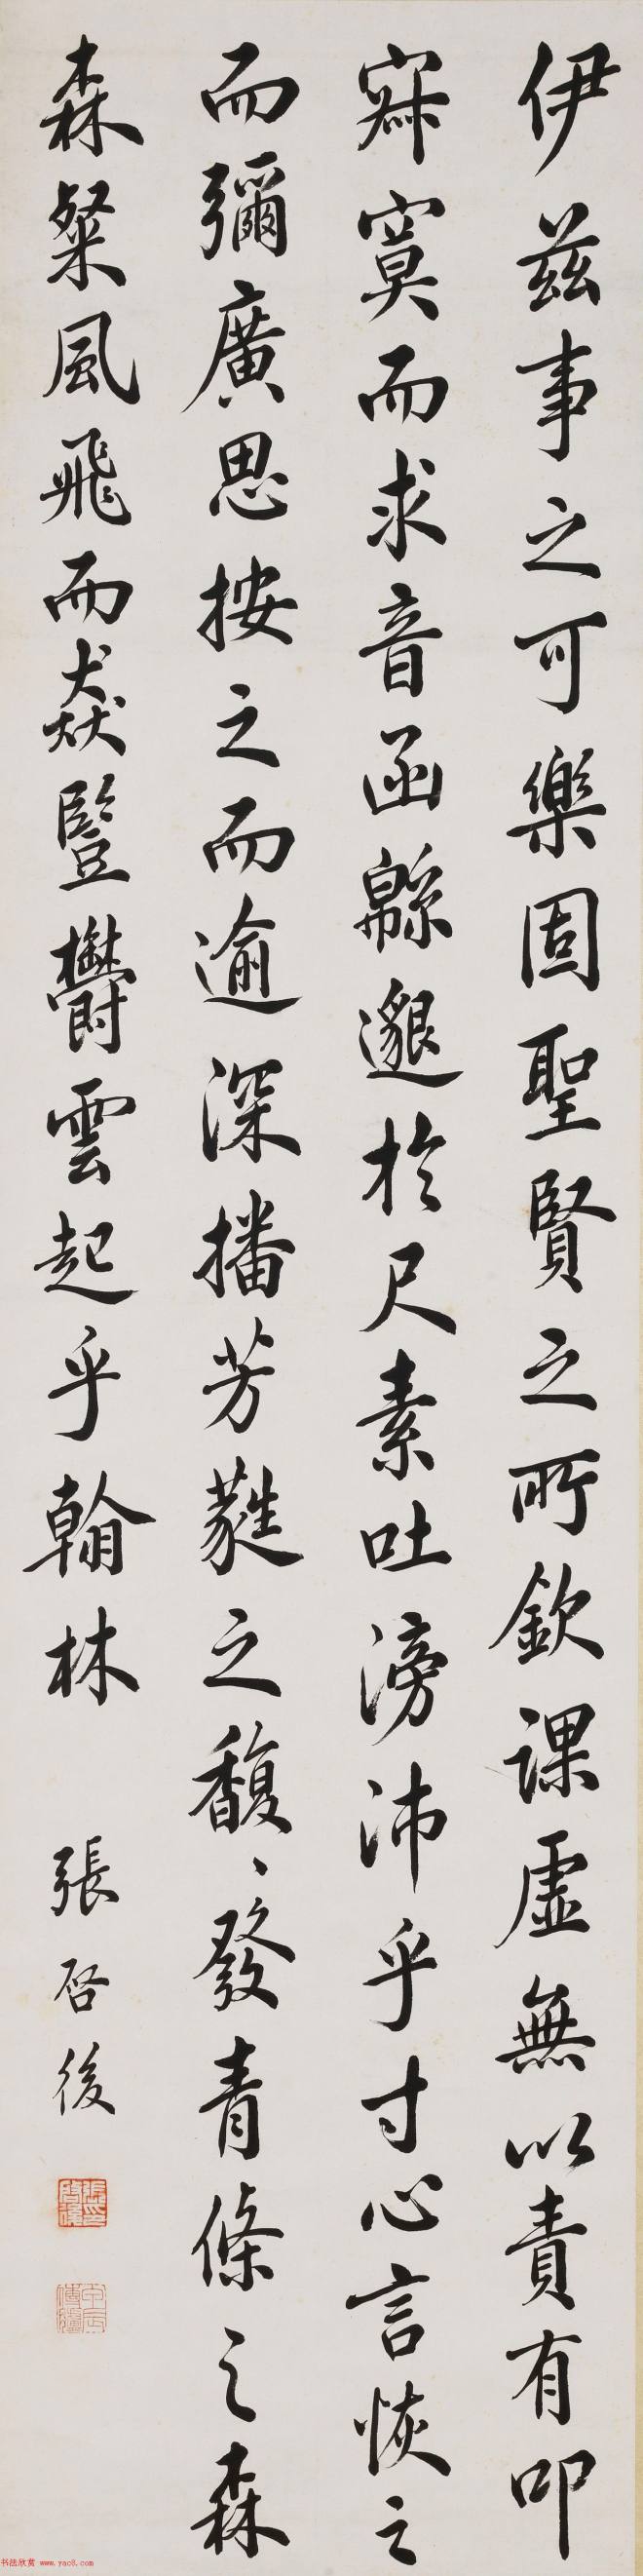 伊茲事之可樂固聖賢之所欽課虛無以責有叩
寂寞而求音函緜邈於尺素吐滂沛乎寸心言恢之
而彌廣思按之而逾深播芳蕤之馥、發青條之森
森粲風飛而猋豎鬱雲起乎翰林
張啓後
張啓後
甲辰傳臚
书法欣赏 www.yac8.com